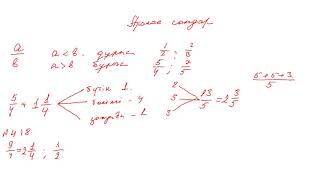 Аралас сандар
a/b a<b. дұрыс 1/2 ; 2/3
a>b бұрыс 5/4 ; 7/5
5/4 = 1 1/4 бүтін 1. бөлімі - 4 2 3 13/5 = 2 3/5 5+5+3/5
№418.
9/4 = 2 1/4 ; 1/2